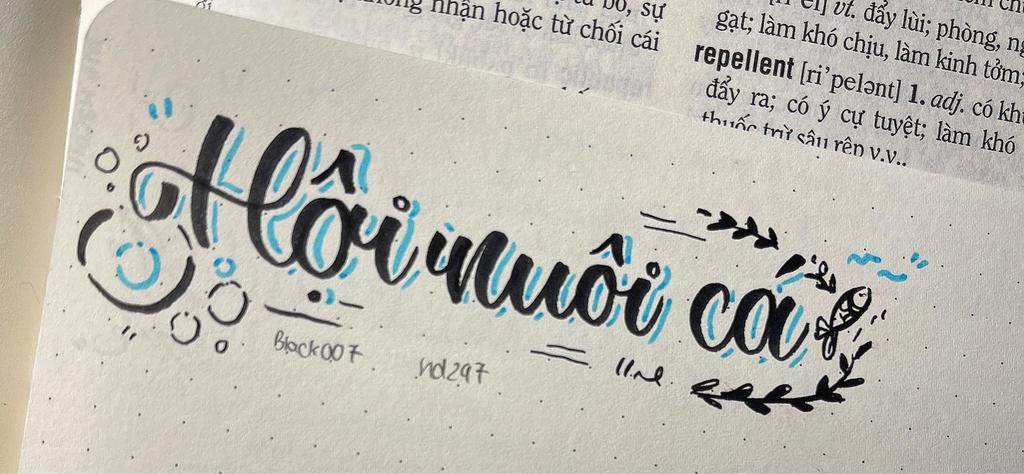 bỏ, sự
nhận hoặc từ chối cái
vt. đẩy lùi; phòng,
gạt; làm khó chịu, làm kinh tởm;
repellent [ri'pelənt] 1. adj. có
đẩy ra; có ý cự tuyệt; làm khó
thuốc trừ sâu rên v.v..
Hội nuôi cá
Black007
hd297